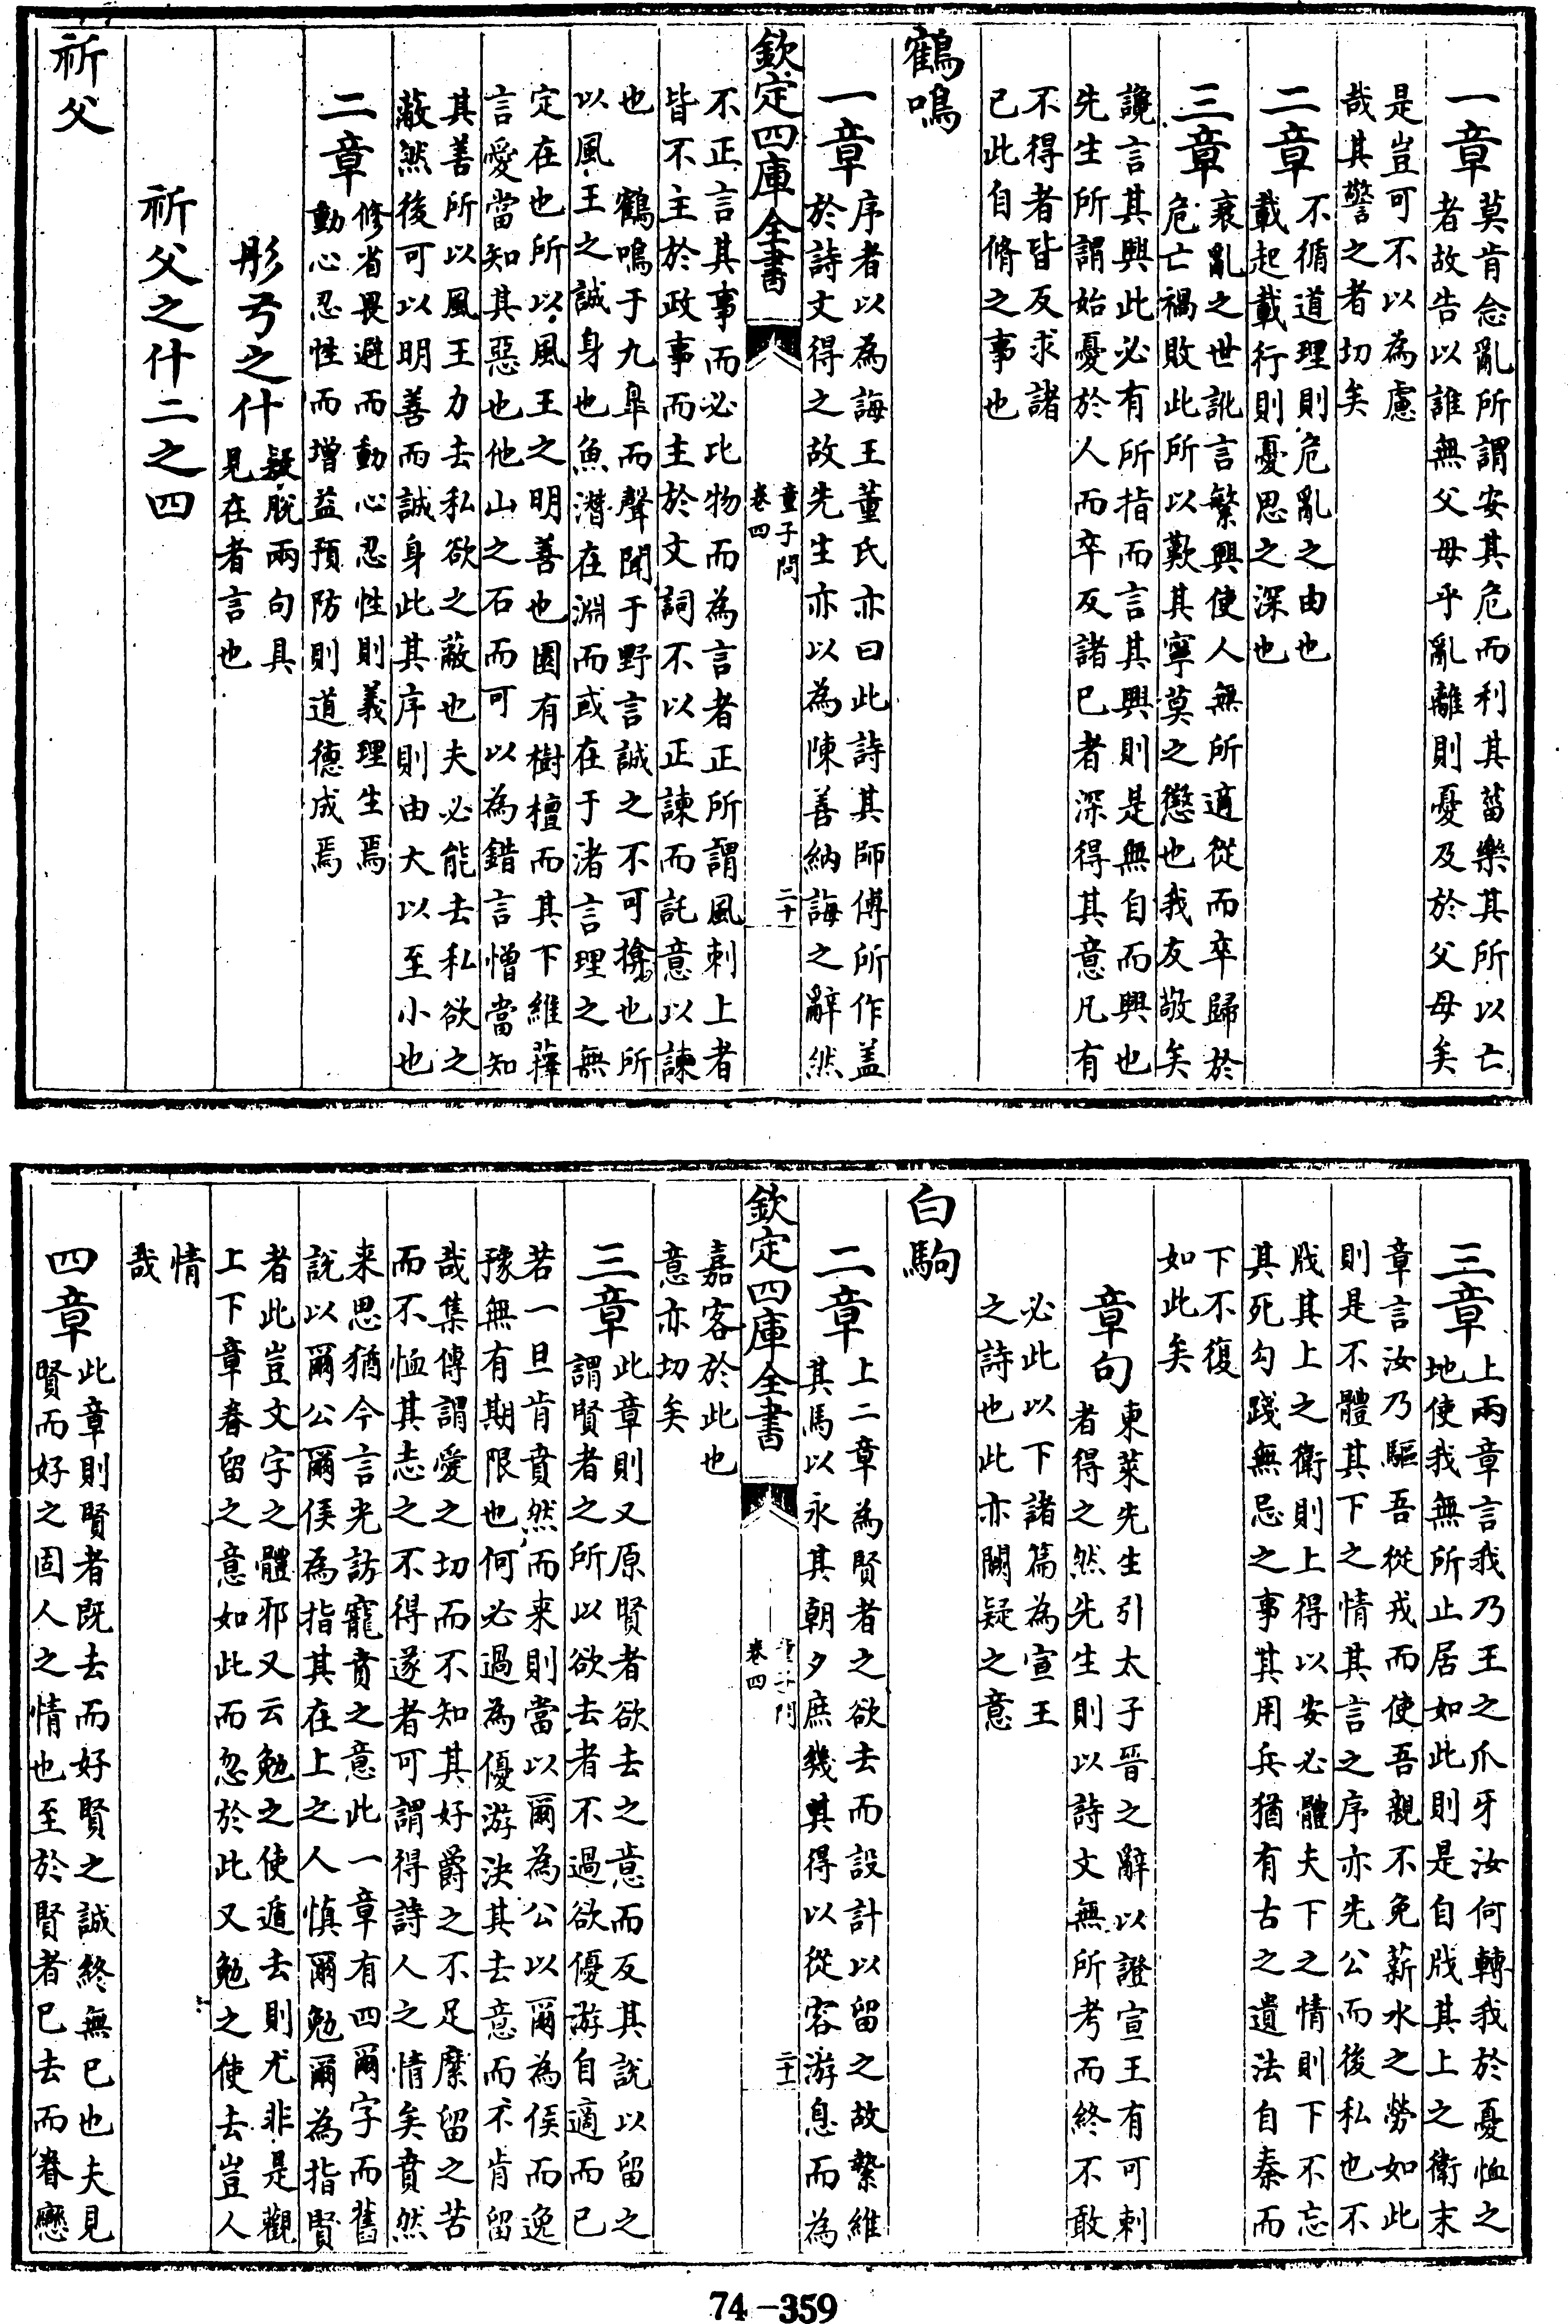 一章莫肯念亂所謂安其危而利其菑樂其所以亡
者故告以誰無父母乎亂離則憂及於父母矣
是豈可不以為慮
哉其警之者切矣
二章不循道理則危亂之由也
載起載行則憂思之深也
三章衰亂之世訛言繁興使人無所適從而卒歸於
危亡禍敗此所以歎其寧莫之懲也我友敬矣
讒言其興此必有所指而言其興則是無自而興也
先生所謂始憂於人而卒反諸已者深得其意凡有
不得者皆反求諸
已此自脩之事也
鶴鳴
一章序者以為誨王董氏亦曰此詩其師傅所作盖
於詩文得之故先生亦以為陳善納誨之辭然
欽定四庫全書
童子問
卷四
二十
不正言其事而必比物而為言者正所謂風刺上者
皆不主於政事而主於文詞不以正諫而託意以諫
也 鶴鳴于九臯而聲聞于野言誠之不可揜也所
以風王之誠身也魚潛在淵而或在于渚言理之無
定在也所以風王之明善也園有樹檀而其下維蘀
言愛當知其惡也他山之石而可以為錯言憎當知
其善所以風王力去私欲之蔽也夫必能去私欲之
蔽然後可以明善而誠身此其序則由大以至小也
二章修省畏避而動心忍性則義理生焉
動心忍性而增益預防則道德成焉
彤弓之什疑脫兩句具
見在者言也
祈父之什二之四
祈父
三章上兩章言我乃王之爪牙汝何轉我於憂恤之
地使我無所止居如此則是自戕其上之衛末
章言汝乃驅吾從戎而使吾親不免薪水之勞如此
則是不體其下之情其言之序亦先公而後私也不
戕其上之衛則上得以安必體夫下之情則下不忘
其死勾踐無忌之事其用兵猶有古之遺法自秦而
下不復
如此矣
章句東萊先生引太子晉之辭以證宣王有可刺
者得之然先生則以詩文無所考而終不敢
必此以下諸篇為宣王
之詩也此亦闕疑之意
白駒
二章上二章為賢者之欲去而設計以留之故縶維
其馬以永其朝夕庶幾其得以從容游息而為
欽定四庫全書
童子問
卷四
二十一
嘉客於此也
意亦切矣
三章此章則又原賢者欲去之意而反其說以留之
謂賢者之所以欲去者不過欲優游自適而已
若一旦肯賁然而来則當以爾為公以爾為侯而逸
豫無有期限也何必過為優游決其去意而不肯留
哉集傳謂愛之切而不知其好爵之不足縻留之苦
而不恤其志之不得遂者可謂得詩人之情矣賁然
来思猶今言光訪寵賁之意此一章有四爾字而舊
說以爾公爾侯為指其在上之人慎爾勉爾為指賢
者此豈文字之體邪又云勉之使遁去則尤非是觀
上下章眷留之意如此而忽於此又勉之使去豈人
情
哉
四章此章則賢者既去而好賢之誠終無已也夫見
賢而好之固人之情也至於賢者已去而眷戀
74-359